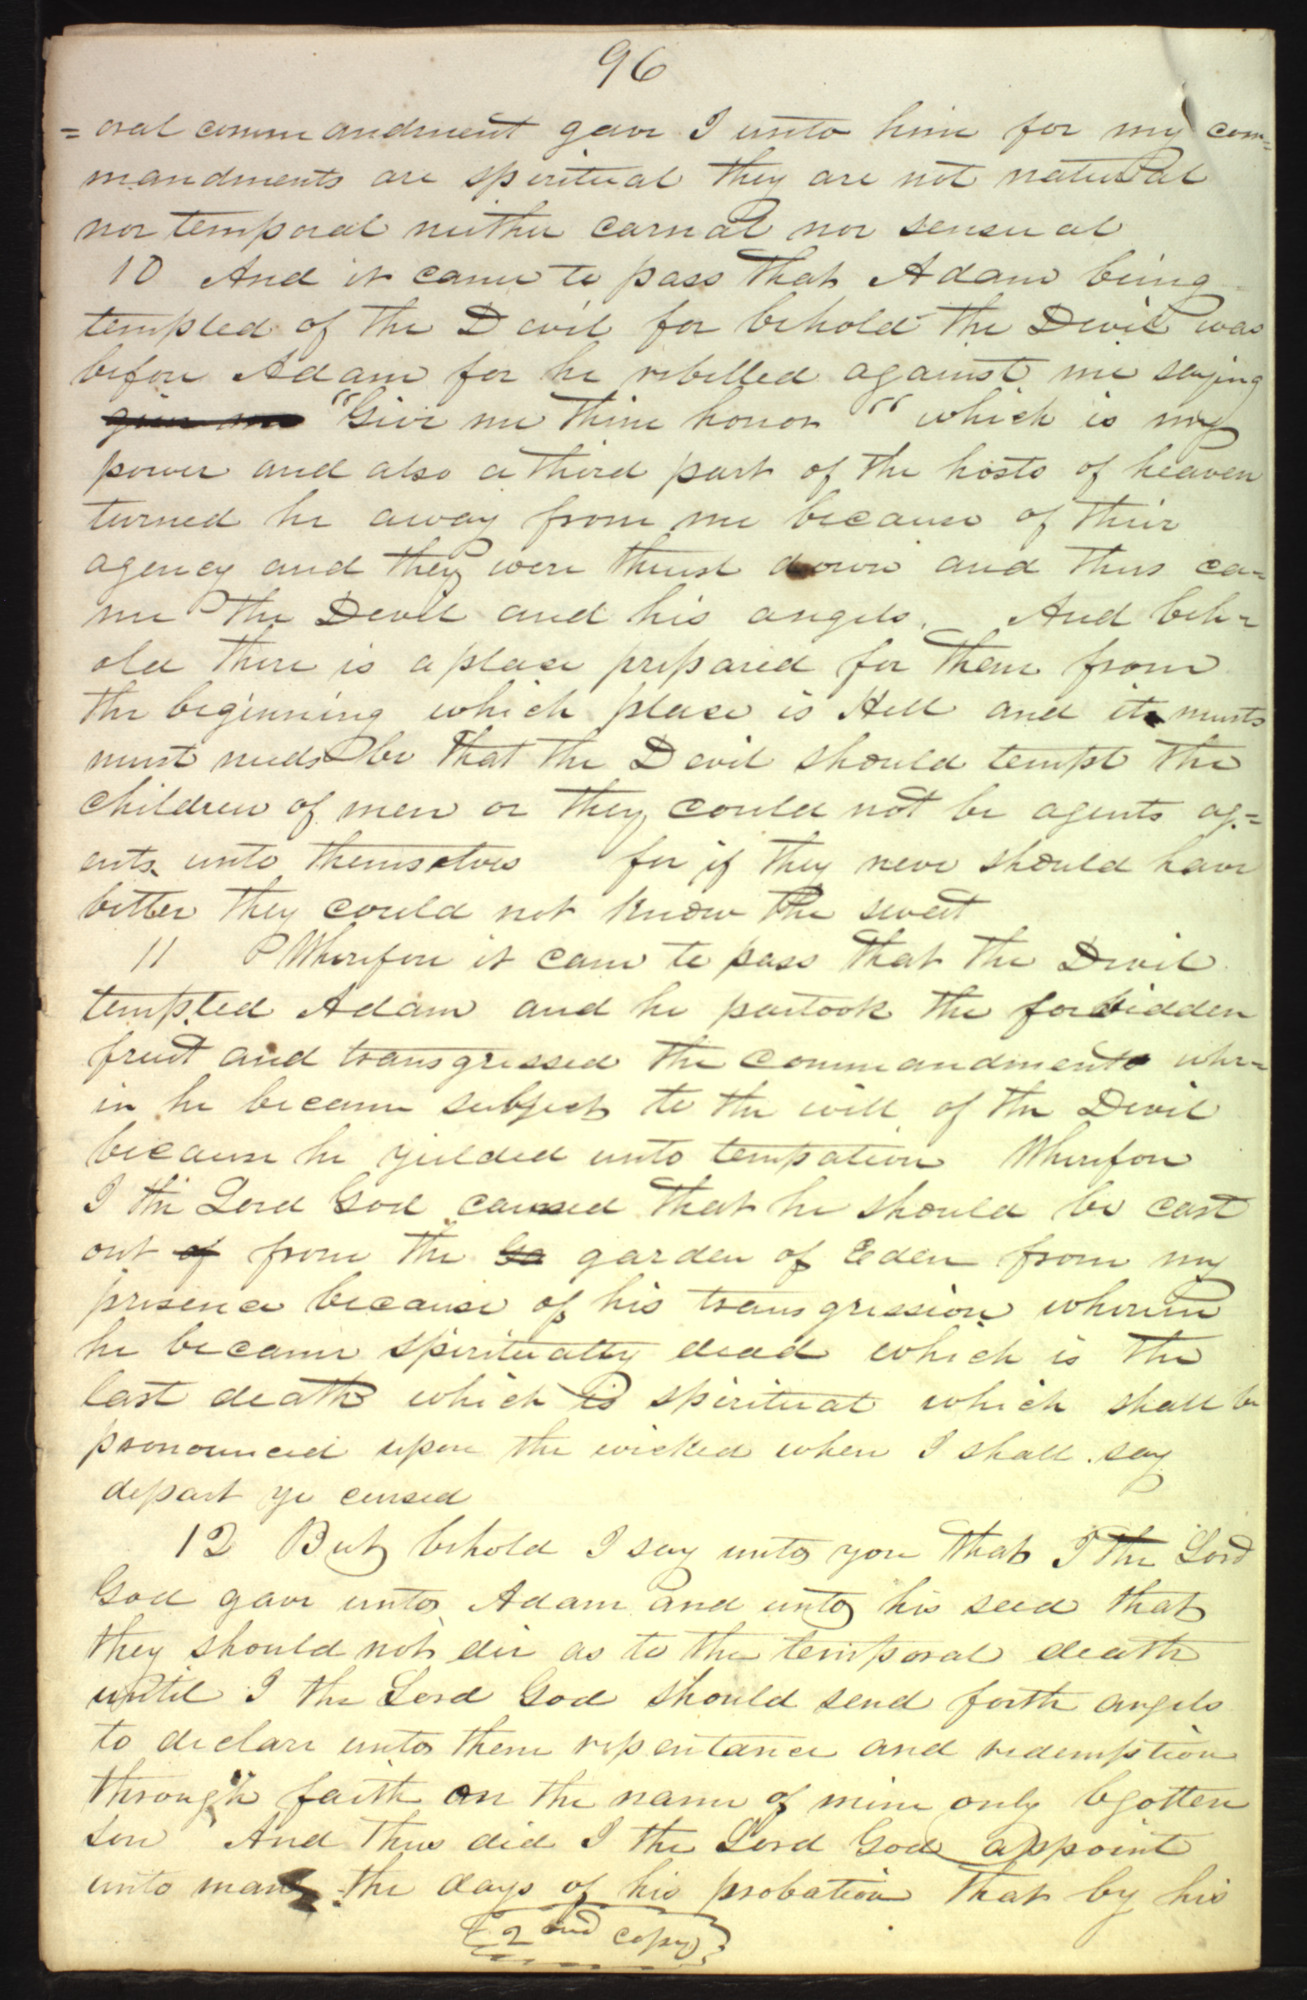 96
=oral commandment gave I unto him for my com=
mandments are spiritual they are not natural
nor temporal neither carnal nor sensual
10 And it came to pass that Adam being
tempted of the Devil for behold the Devil was
before Adam for he rebelled against me saying
give me "Give me thine honor" which is my
power and also a third part of the hosts of heaven
turned he away from me because of their
agency and they were thrust down and thus ca=
me the Devil and his angels. And beh=
old there is a place prepared for them from
the beginning which place is Hell and it musts
must needs be that the Devil should tempt the
children of men or they could not be agents ag=
ents unto themselves for if they never should have
bitter they could not know the sweet
11 Wherefore it came to pass that the Devil
tempted Adam and he partook the forbidden
fruit and transgressed the commandments wher=
in he became subject to the will of the Devil
because he yielded unto tempation Wherefore
I the Lord God caused that he should be cast
out of from the Ga garden of Eden from my
presence because of his transgression wherein
he became spiritually dead which is the
last death which is spiritual which shall be
pronounced upon the wicked when I shall say
depart ye cursed
12 But behold I say unto you that I the Lord
God gave unto Adam and unto his seed that
they should not die as to the temporal death
until I the Lord God should send forth angels
to declare unto them repentance and redemption
through faith on the name of mine only bgotten
son And thus did I the Lord God appoint
unto man the days of his probation that by his
2nd copy